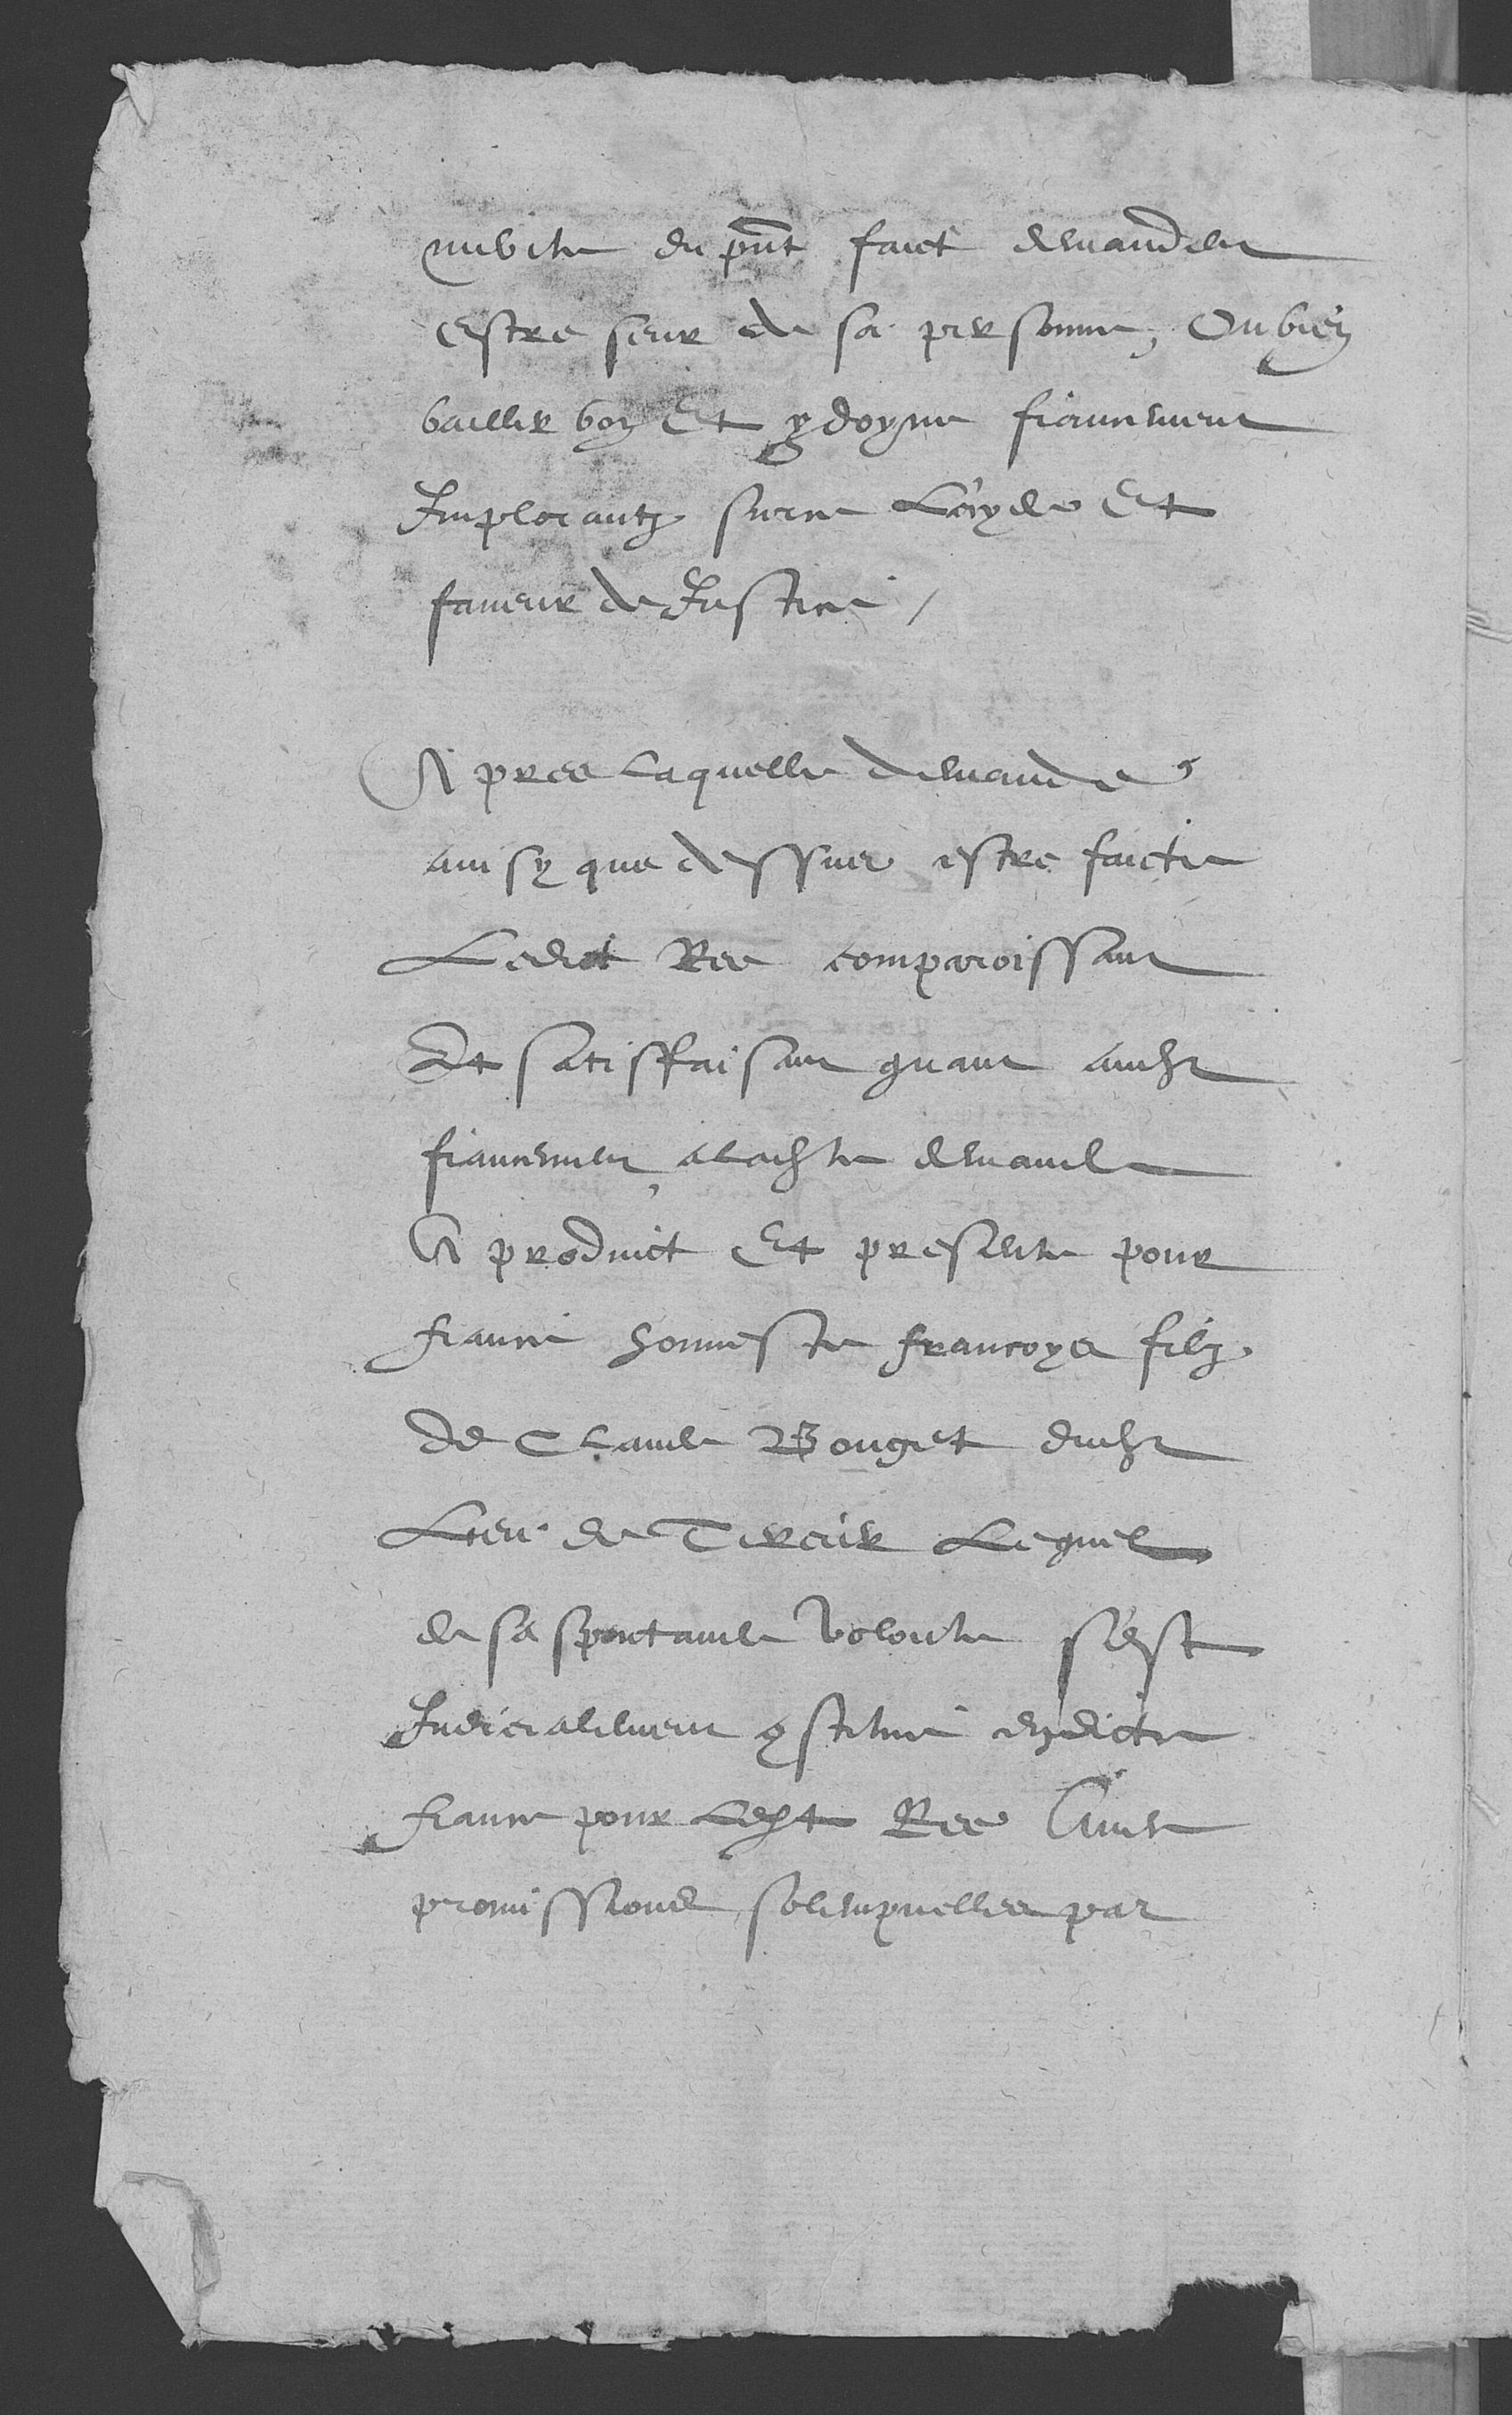 du pnt faict demandent
Estre seur de sa personne, Ou bien
bailler bon Et ydoyne fiancement
Implorantz surce Layde Et
faveur de Justice /
Apres laquelle demande
ainsy que dessus estre faicte
Ledict Ree comparoissant
Et satisffaisant quant audt
fiancement a ladte demande
A produict Et presente pour
fiance honneste francoys filz
de Claude Bouget dudt
Lieu de Tercier Lequel
de sa spontanee volonte s'est
Judicialement constitue en dicte
fiance pour Ledt Ree Avec
promissions solempnelles par